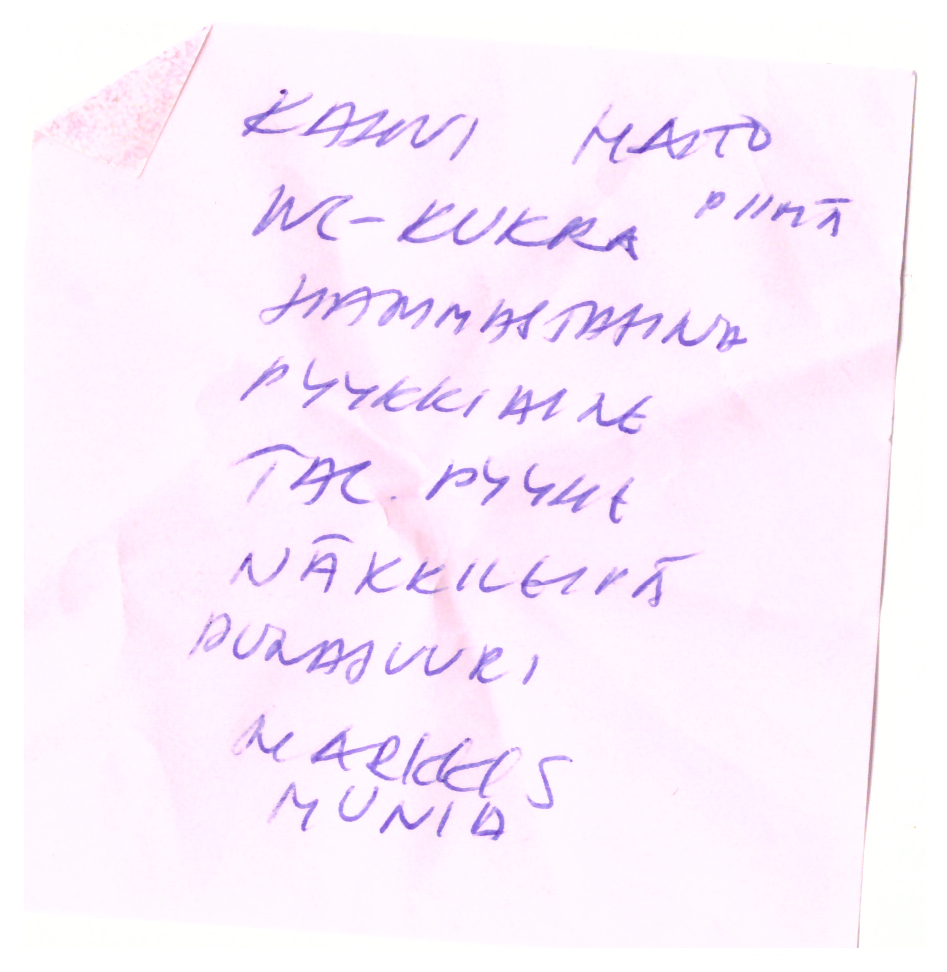 KAHVI MAITO
WC-KUKKA PIIMÄ
HAMMASTAHNA
PYYKKIAINE
TAL. PYYHE
NÄKKILEIPÄ
PUNAJUURI
MARKKIS
MUNIA